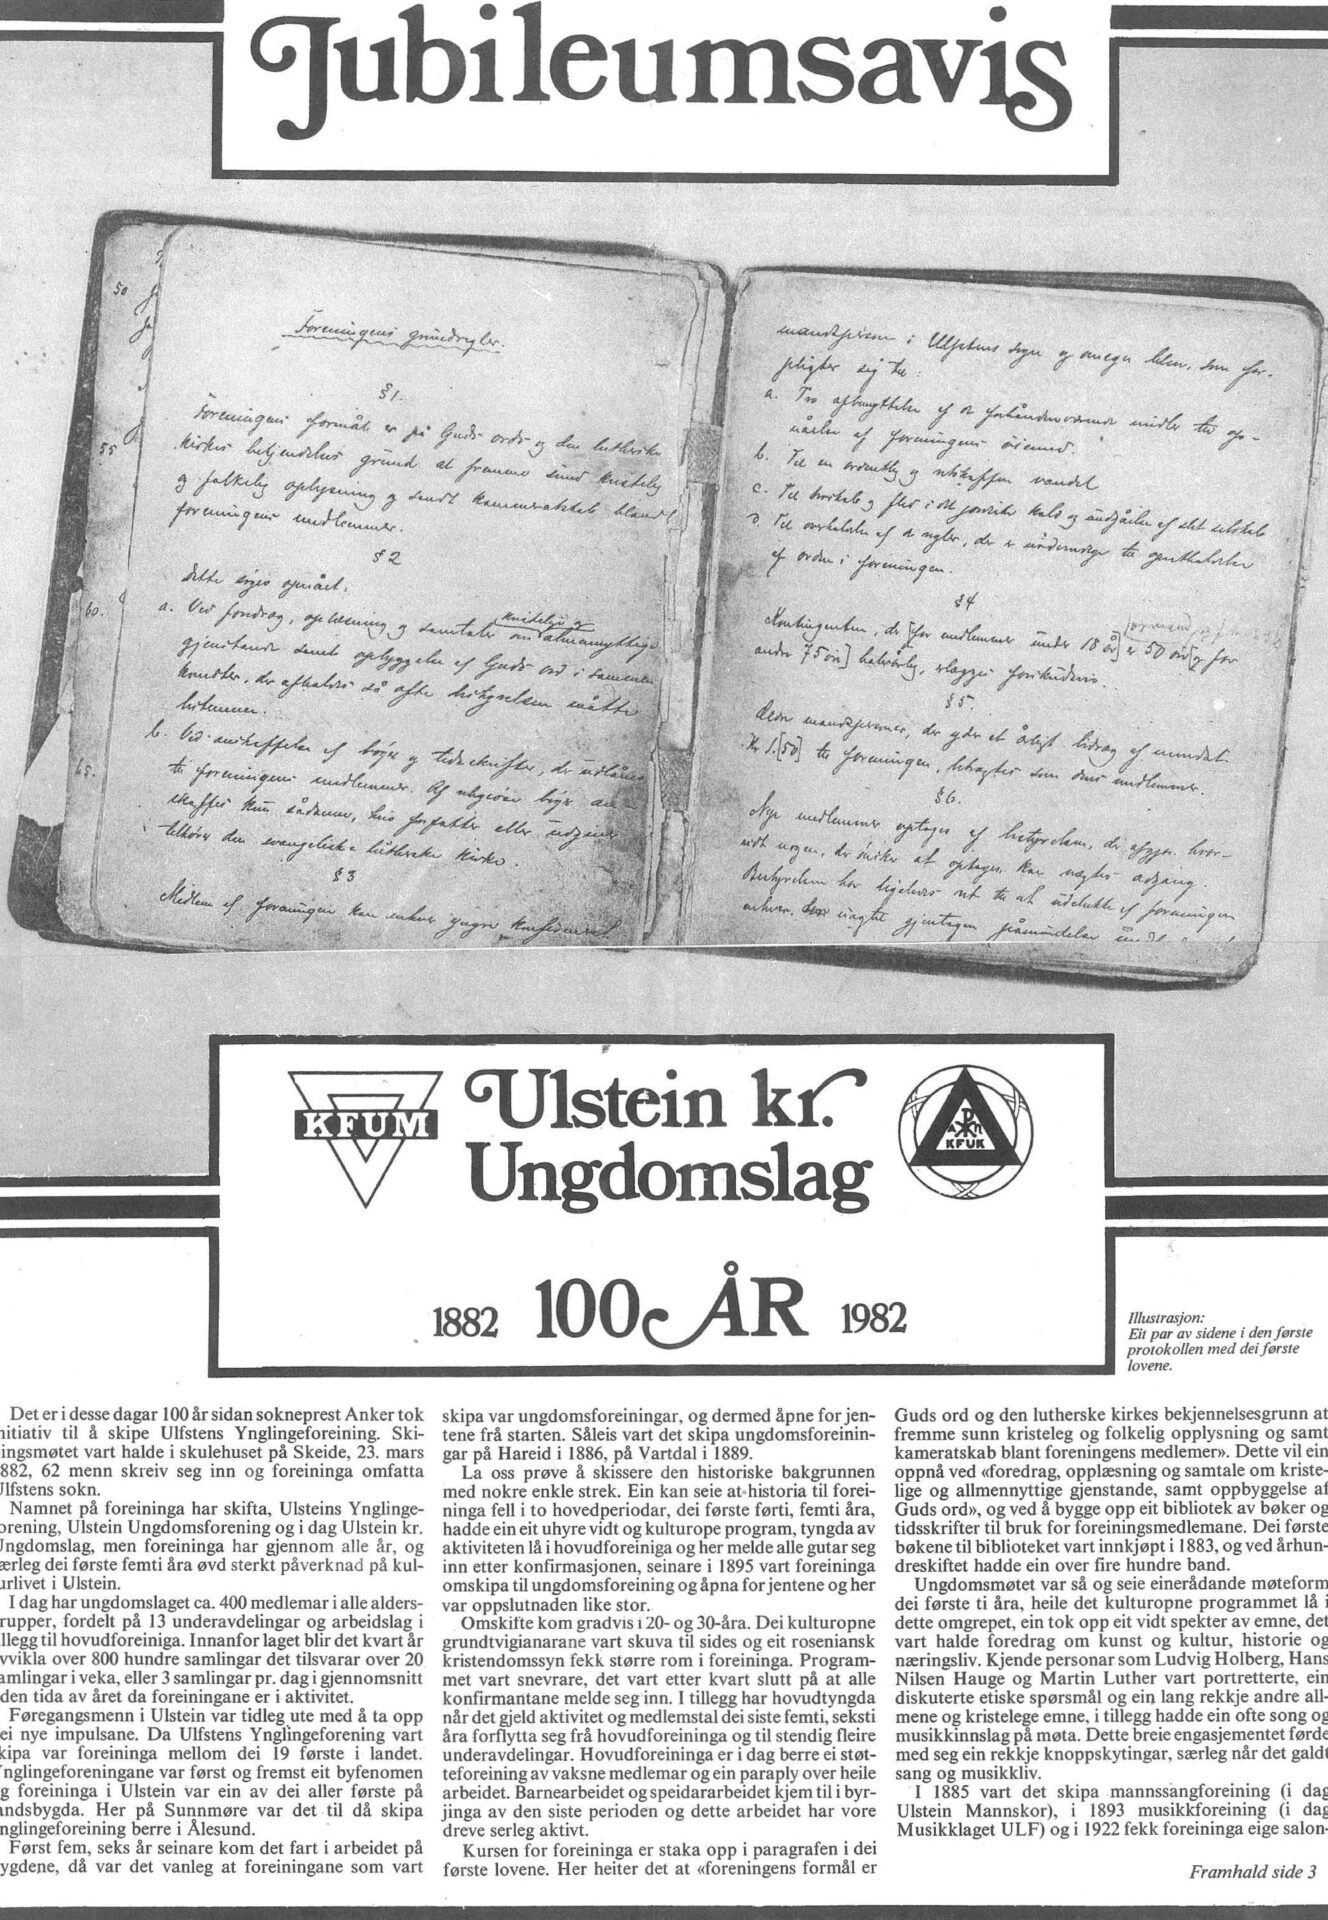 Jubileumsavis
50
55
60.
65.
Foreningens grundregler.
§ 1.
Foreningens formål er på Guds ords og den lutherske
kirkes bekjendelses grund at fremme sund kristelig
og folkelig oplysning og sandt kammeratskab blandt
foreningens medlemmer.
§ 2
Dette søges opnået:
kristelige og
a. Ved foredrag, oplæsning og samtaler om almennyttige
gjenstande samt opbyggelse af Guds ord i sammen-
komster, der afholdes så ofte bestyrelsen måtte
bestemme.
b. Ved anskaffelse af bøger og tidsskrifter, der udlånes
til foreningens medlemmer. Af religiøse bøger an-
skaffes kun sådanne, hvis forfatter eller udgiver
tilhører den evangelisk-lutherske kirke.
§ 3
Medlem af foreningen kan enhver yngre konfirmeret
mandsperson i Ulfstens sogn og omegn blive, som for-
pligter sig til:
a. Tro afbenyttelse af de forhåndenværende midler til op-
nåelse af foreningens øiemed.
b. Til en ordentlig og retskaffen vandel
c. Til troskab og flid i det jordiske kald og undgåelse af slet selskab
d. Til overholdelse af de regler, der er nødvendige til opretholdelse
af orden i foreningen.
§ 4
Kontingenten, der [for medlemmer under 18 år] er 50 øre [og for
andre 75 øre] halvårlig, erlægges forskudsvis.
§ 5.
Ældre mandspersoner, der yder et årligt bidrag af mindst
Kr 1.[50] til foreningen, betragtes som dens medlemmer.
§ 6.
Nye medlemmer optages af bestyrelsen, der afgjør, hvor-
vidt nogen, der ønsker at optages, kan nægtes adgang.
Bestyrelsen har ligeledes ret til at udelukke af foreningen
enhver, uagtet gjentagen påmindelse
KFUM
Ulstein kr.
Ungdomslag
KFUK
1882 100 ÅR 1982
Illustrasjon:
Eit par av sidene i den første
protokollen med dei første
lovene.
Det er i desse dagar 100 år sidan sokneprest Anker tok
nitiativ til å skipe Ulfstens Ynglingeforeining. Ski-
ingsmøtet vart halde i skulehuset på Skeide, 23. mars
882, 62 menn skreiv seg inn og foreininga omfatta
Ulfstens sokn.
Namnet på foreininga har skifta, Ulsteins Ynglinge-
orening, Ulstein Ungdomsforening og i dag Ulstein kr.
Ungdomslag, men foreininga har gjennom alle år, og
ærleg dei første femti åra øvd sterkt påverknad på kul-
urlivet i Ulstein.
I dag har ungdomslaget ca. 400 medlemar i alle alders-
rupper, fordelt på 13 underavdelingar og arbeidslag i
illegg til hovudforeiniga. Innanfor laget blir det kvart år
vvikla over 800 hundre samlingar det tilsvarar over 20
amlingar i veka, eller 3 samlingar pr. dag i gjennomsnitt
den tida av året da foreiningane er i aktivitet.
Føregangsmenn i Ulstein var tidleg ute med å ta opp
ei nye impulsane. Da Ulfstens Ynglingeforening vart
kipa var foreininga mellom dei 19 første i landet.
Ynglingeforeningane var først og fremst eit byfenomen
g foreininga i Ulstein var ein av dei aller første på
andsbygda. Her på Sunnmøre var det til då skipa
nglingeforening berre i Ålesund.
Først fem, seks år seinare kom det fart i arbeidet på
ygdene, då var det vanleg at foreiningane som vart
skipa var ungdomsforeiningar, og dermed åpne for jen-
tene frå starten. Såleis vart det skipa ungdomsforeinin-
gar på Hareid i 1886, på Vartdal i 1889.
La oss prøve å skissere den historiske bakgrunnen
med nokre enkle strek. Ein kan seie at historia til forei-
ninga fell i to hovedperiodar, dei første førti, femti åra,
hadde ein eit uhyre vidt og kulturope program, tyngda av
aktiviteten lå i hovudforeiniga og her melde alle gutar seg
inn etter konfirmasjonen, seinare i 1895 vart foreininga
omskipa til ungdomsforeining og åpna for jentene og her
var oppslutnaden like stor.
Omskifte kom gradvis i 20- og 30-åra. Dei kulturopne
grundtvigianarane vart skuva til sides og eit roseniansk
kristendomssyn fekk større rom i foreininga. Program-
met vart snevrare, det vart etter kvart slutt på at alle
konfirmantane melde seg inn. I tillegg har hovudtyngda
når det gjeld aktivitet og medlemstal dei siste femti, seksti
åra forflytta seg frå hovudforeininga og til stendig fleire
underavdelingar. Hovudforeininga er i dag berre ei støt-
teforeining av vaksne medlemar og ein paraply over heile
arbeidet. Barnearbeidet og speidararbeidet kjem til i byr-
jinga av den siste perioden og dette arbeidet har vore
dreve serleg aktivt.
Kursen for foreininga er staka opp i paragrafen i dei
første lovene. Her heiter det at «foreningens formål er
Guds ord og den lutherske kirkes bekjennelsesgrunn at
fremme sunn kristeleg og folkelig opplysning og samt
kameratskab blant foreningens medlemer». Dette vil ein
oppnå ved «foredrag, opplæsning og samtale om kriste-
lige og allmennyttige gjenstande, samt oppbyggelse af
Guds ord», og ved å bygge opp eit bibliotek av bøker og
tidsskrifter til bruk for foreiningsmedlemane. Dei første
bøkene til biblioteket vart innkjøpt i 1883, og ved århun-
dreskiftet hadde ein over fire hundre band.
Ungdomsmøtet var så og seie einerådande møteform
dei første ti åra, heile det kulturopne programmet lå i
dette omgrepet, ein tok opp eit vidt spekter av emne, det
vart halde foredrag om kunst og kultur, historie og
næringsliv. Kjende personar som Ludvig Holberg, Hans
Nilsen Hauge og Martin Luther vart portretterte, ein
diskuterte etiske spørsmål og ein lang rekkje andre all-
mene og kristelege emne, i tillegg hadde ein ofte song og
musikkinnslag på møta. Dette breie engasjementet førde
med seg ein rekkje knoppskytingar, særleg når det galdt
sang og musikkliv.
I 1885 vart det skipa mannssangforeining (i dag
Ulstein Mannskor), i 1893 musikkforeining (i dag
Musikklaget ULF) og i 1922 fekk foreininga eige salon-
Framhald side 3